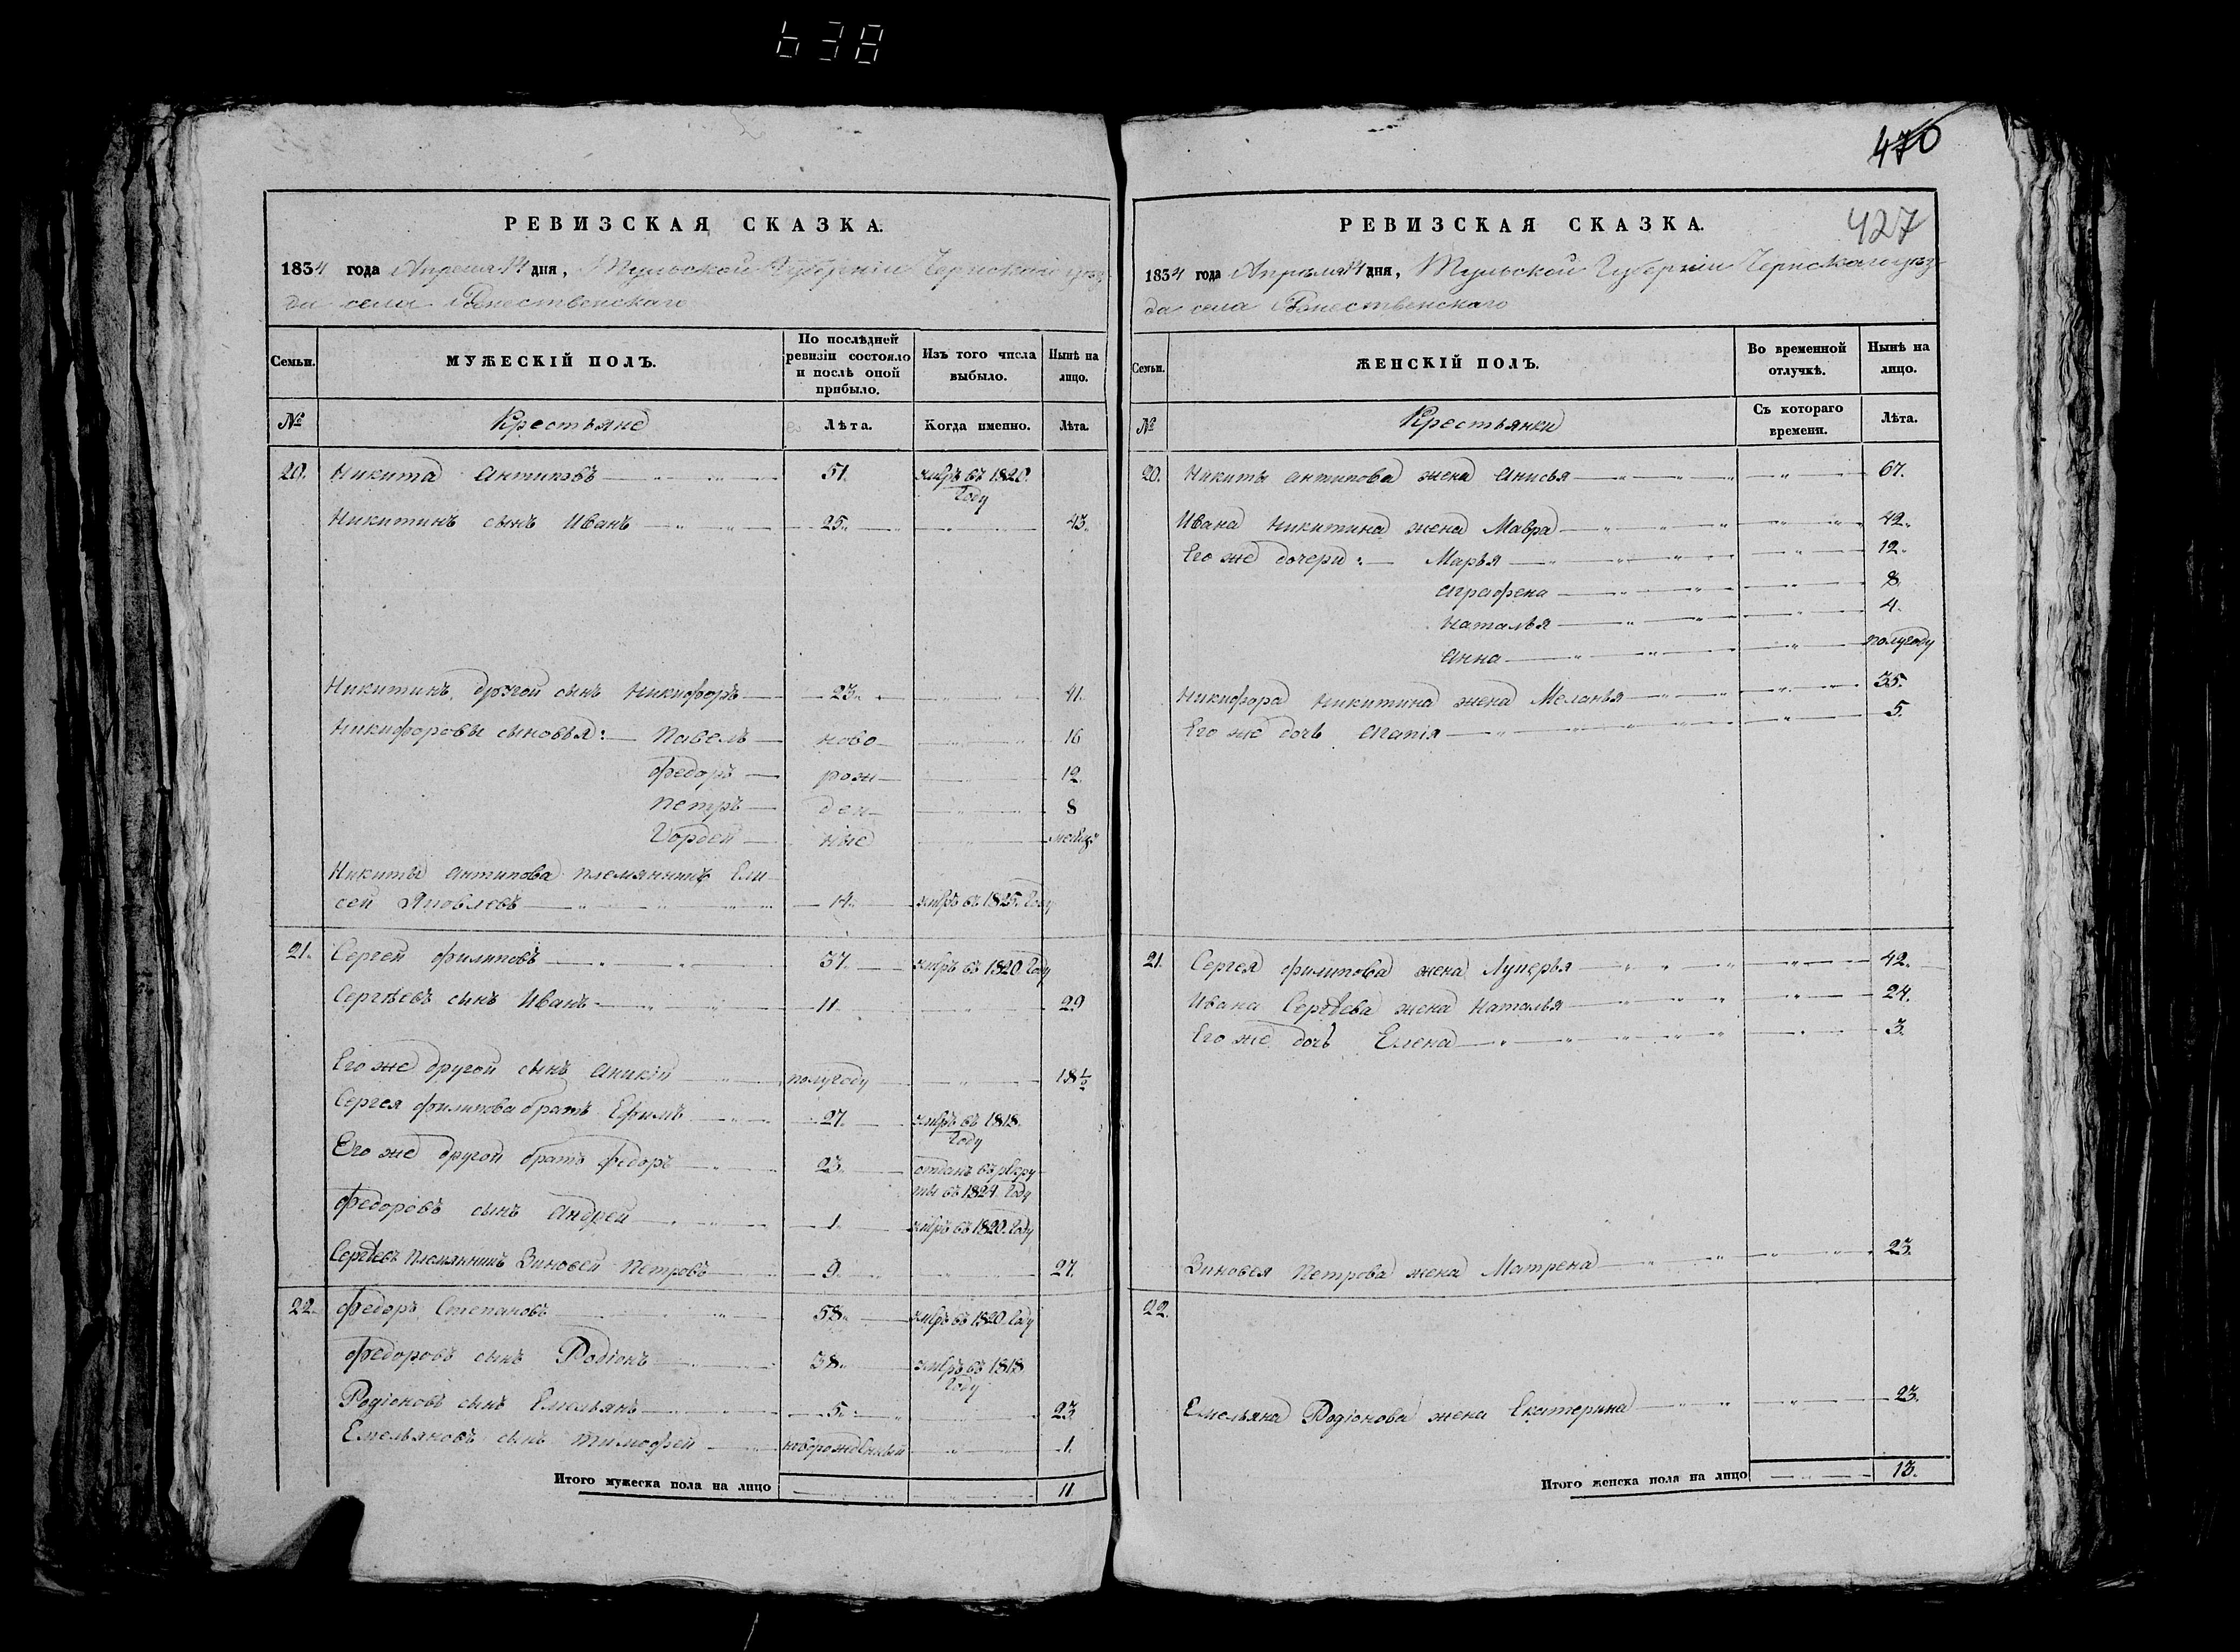 638
470
427
РЕВИЗСКАЯ СКАЗКА.
1834 года Апреля 14 дня, Тульской Губерніи Чернскаго уѣз
да села Рожественскаго
Семьи.
МУЖЕСКІЙ ПОЛЪ.
По послѣдней
ревизіи состояло
и послѣ оной
прибыло.
Изъ того числа
выбыло.
Нынѣ на
лицо.
№
Крестьяне
Лѣта.
Когда именно.
Лѣта.
20. Никита Антиповъ 51. умръ въ 1820.
Году
Никитинъ сынъ Иванъ 25. 43.
Никитинъ другой сынъ Никифоръ 23. 41.
Никифоровы сыновья: Павелъ ново 16
Федоръ рож 12.
Петръ ден 8
Гордей ные месяцъ
Никиты Антипова племянникъ Ели
сей Яковлевъ 14. умръ въ 1825. Году
21. Сергей Филиповъ 37. умръ въ 1820 Году
Сергѣевъ сынъ Иванъ 11. 29
Его же другой сынъ Аникій полугоду 18½
Сергея Филипова братъ Ефимъ 27. умръ въ 1818.
Году
Его же другой братъ Федоръ 23. отданъ въ рекру
ты въ 1824. Году
Федоровъ сынъ Андрей 1. умръ въ 1820. Году
Сергѣевъ племянникъ Зиновей Петровъ 9. 27.
22. Федоръ Степановъ 58. умръ въ 1820. Году
Федоровъ сынъ Родіонъ 38. умръ въ 1818
Году
Родіоновъ сынъ Емельянъ 5. 23
Емельяновъ сынъ Тимофей новорожденный 1.
Итого мужеска пола на лицо 11.
РЕВИЗСКАЯ СКАЗКА.
1834 года Апреля 14 дня, Тульской Губерніи Чернскаго уѣз
да села Рожественскаго
Семьи.
ЖЕНСКІЙ ПОЛЪ.
Во временной
отлучкѣ.
Нынѣ на
лицо.
№
Крестьянки
Съ котораго
времени.
Лѣта.
20. Никиты Антипова жена Анисья 67.
Ивана Никитина жена Мавра 42.
Его же дочери: Марья 12.
Аграфена 8.
Наталья 4.
Анна полугоду
Никифора Никитина жена Меланья 35.
Его же дочь Агапія 5.
21. Сергея Филипова жена Лукерья 42.
Ивана Сергѣева жена Наталья 24.
Его же дочь Елена 3.
Зиновея Петрова жена Матрена 23.
22.
Емельяна Родіонова жена Екатерина 23.
Итого женска пола на лицо 13.